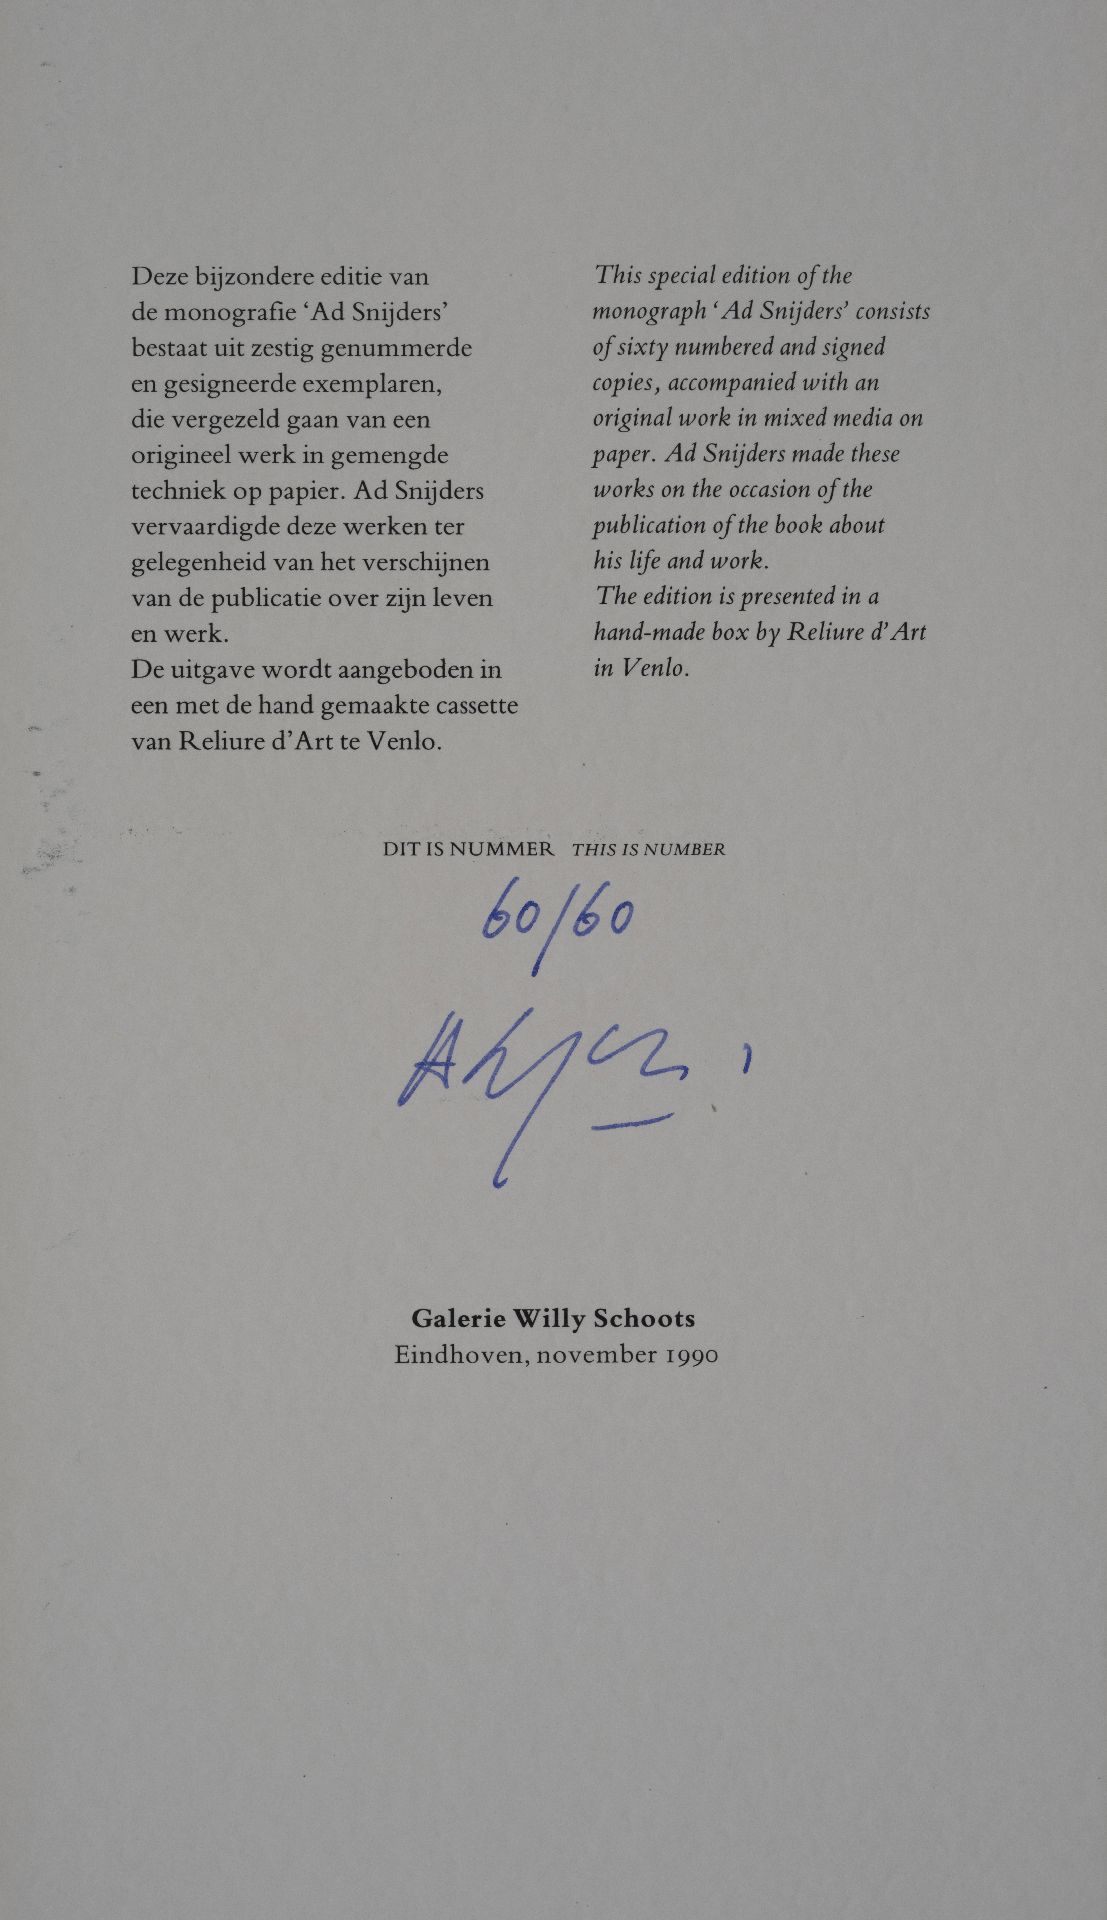 Deze bijzondere editie van
de monografie ‘Ad Snijders’
bestaat uit zestig genummerde
en gesigneerde exemplaren,
die vergezeld gaan van een
origineel werk in gemengde
techniek op papier. Ad Snijders
vervaardigde deze werken ter
gelegenheid van het verschijnen
van de publicatie over zijn leven
en werk.
De uitgave wordt aangeboden in
een met de hand gemaakte cassette
van Reliure d’Art te Venlo.
This special edition of the
monograph ‘Ad Snijders’ consists
of sixty numbered and signed
copies, accompanied with an
original work in mixed media on
paper. Ad Snijders made these
works on the occasion of the
publication of the book about
his life and work.
The edition is presented in a
hand-made box by Reliure d’Art
in Venlo.
DIT IS NUMMER THIS IS NUMBER
60/60
Galerie Willy Schoots
Eindhoven, november 1990